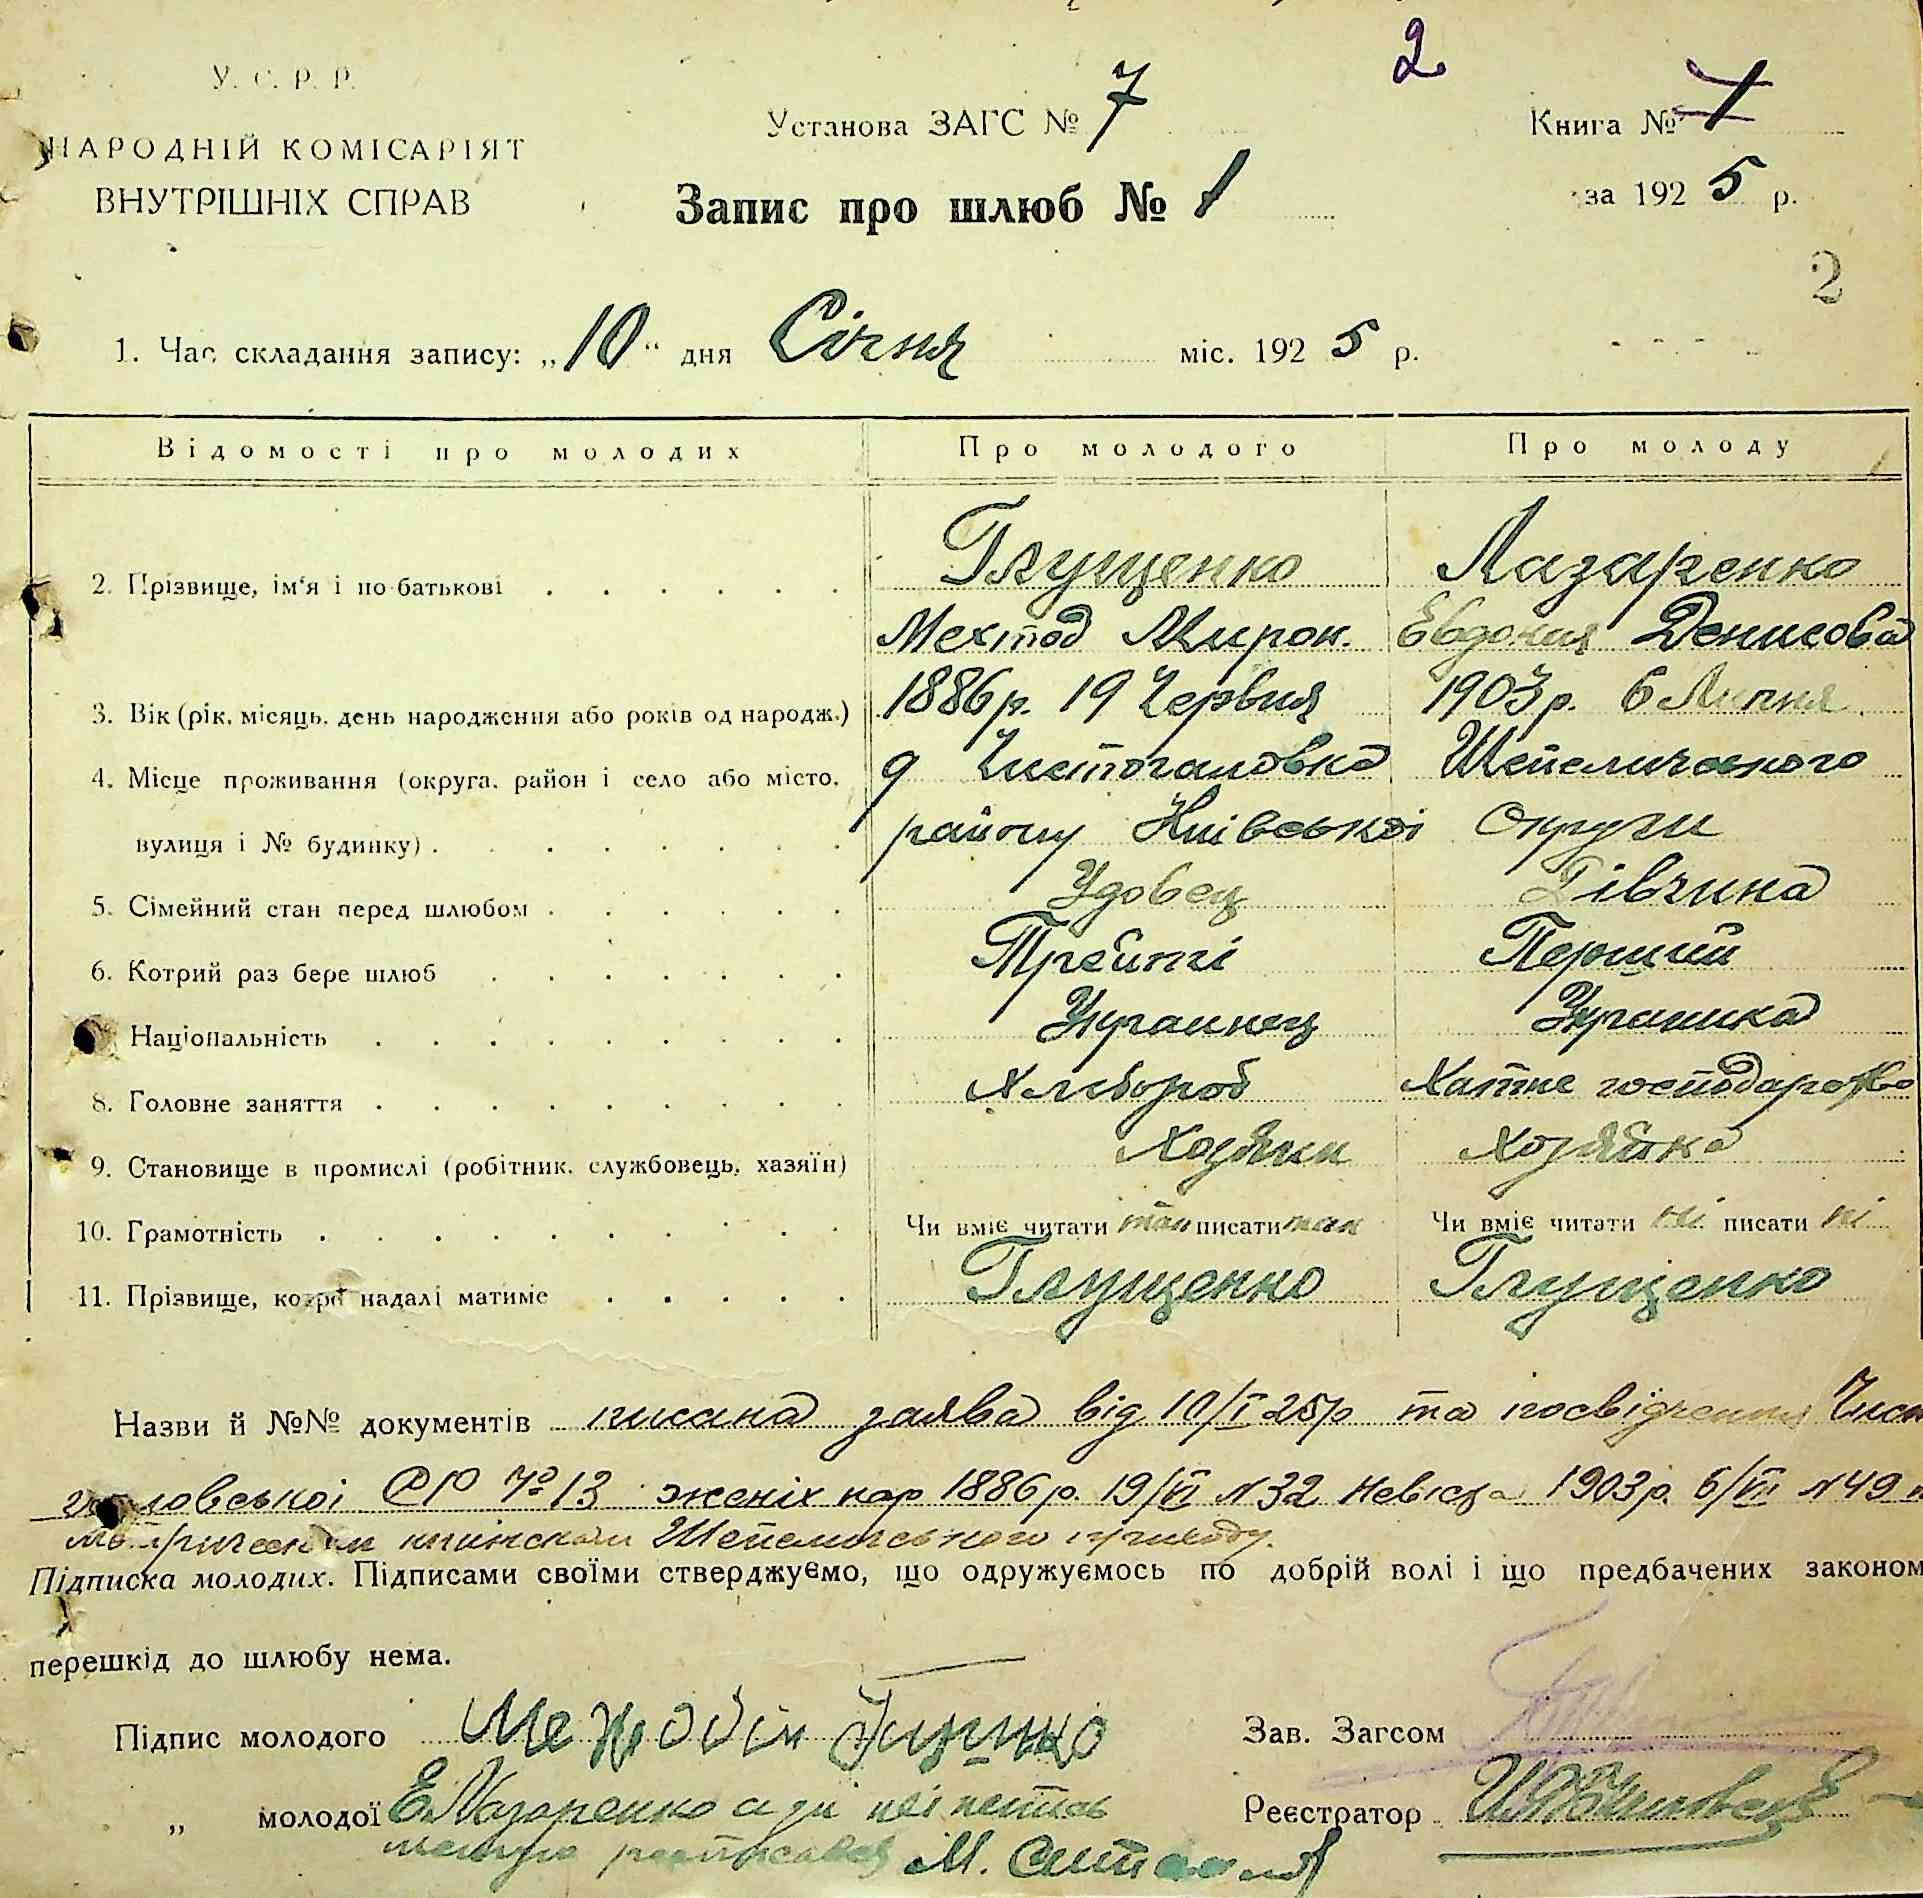 2
У. С. Р. Р.
НАРОДНІЙ КОМІСАРІЯТ
ВНУТРІШНІХ СПРАВ
Установа ЗАГС № 7
Книга № 1
Запис про шлюб № 1
за 1925 р.
2
1. Час складання запису: „10“ дня Січня міс. 1925 р.
Відомості про молодих Про молодого Про молоду
2. Прізвище, ім‘я і по-батькові Глущенко Лазаренко
Мехтод Мирон. Евдокия Денисова
3. Вік (рік, місяць, день народження або років од народж.) 1886р. 19 Червня 1903р. 6 Липня
4. Місце проживання (округа, район і село або місто, Чистогаловка Шепеличського
вулиця і № будинку) району Київської Округи
5. Сімейний стан перед шлюбом Удовец Дівчина
6. Котрий раз бере шлюб Трейті Перший
Національність Украинец Украинка
8. Головне заняття Хлібороб Хатне господарство
9. Становище в промислі (робітник, службовець, хазяїн) Хозяин Хозяйка
10. Грамотність Чи вміє читати так писати так Чи вміє читати ні писати ні
11. Прізвище, котре надалі матиме Глущенко Глущенко
Назви й №№ документів писана заява від 10/I 25р та посвідчення Чист
ловської СР № 13 женіх нар 1886р. 19/VI N 32 Невіста 1903р. 6/VII N 49
Шепеличського приходу.
Підписка молодих. Підписами своїми стверджуємо, що одружуємось по добрій волі і що предбачених законом
перешкід до шлюбу нема.
Підпис молодого
Зав. Загсом
„ молодої Е Лазаренко
Реєстратор
М.